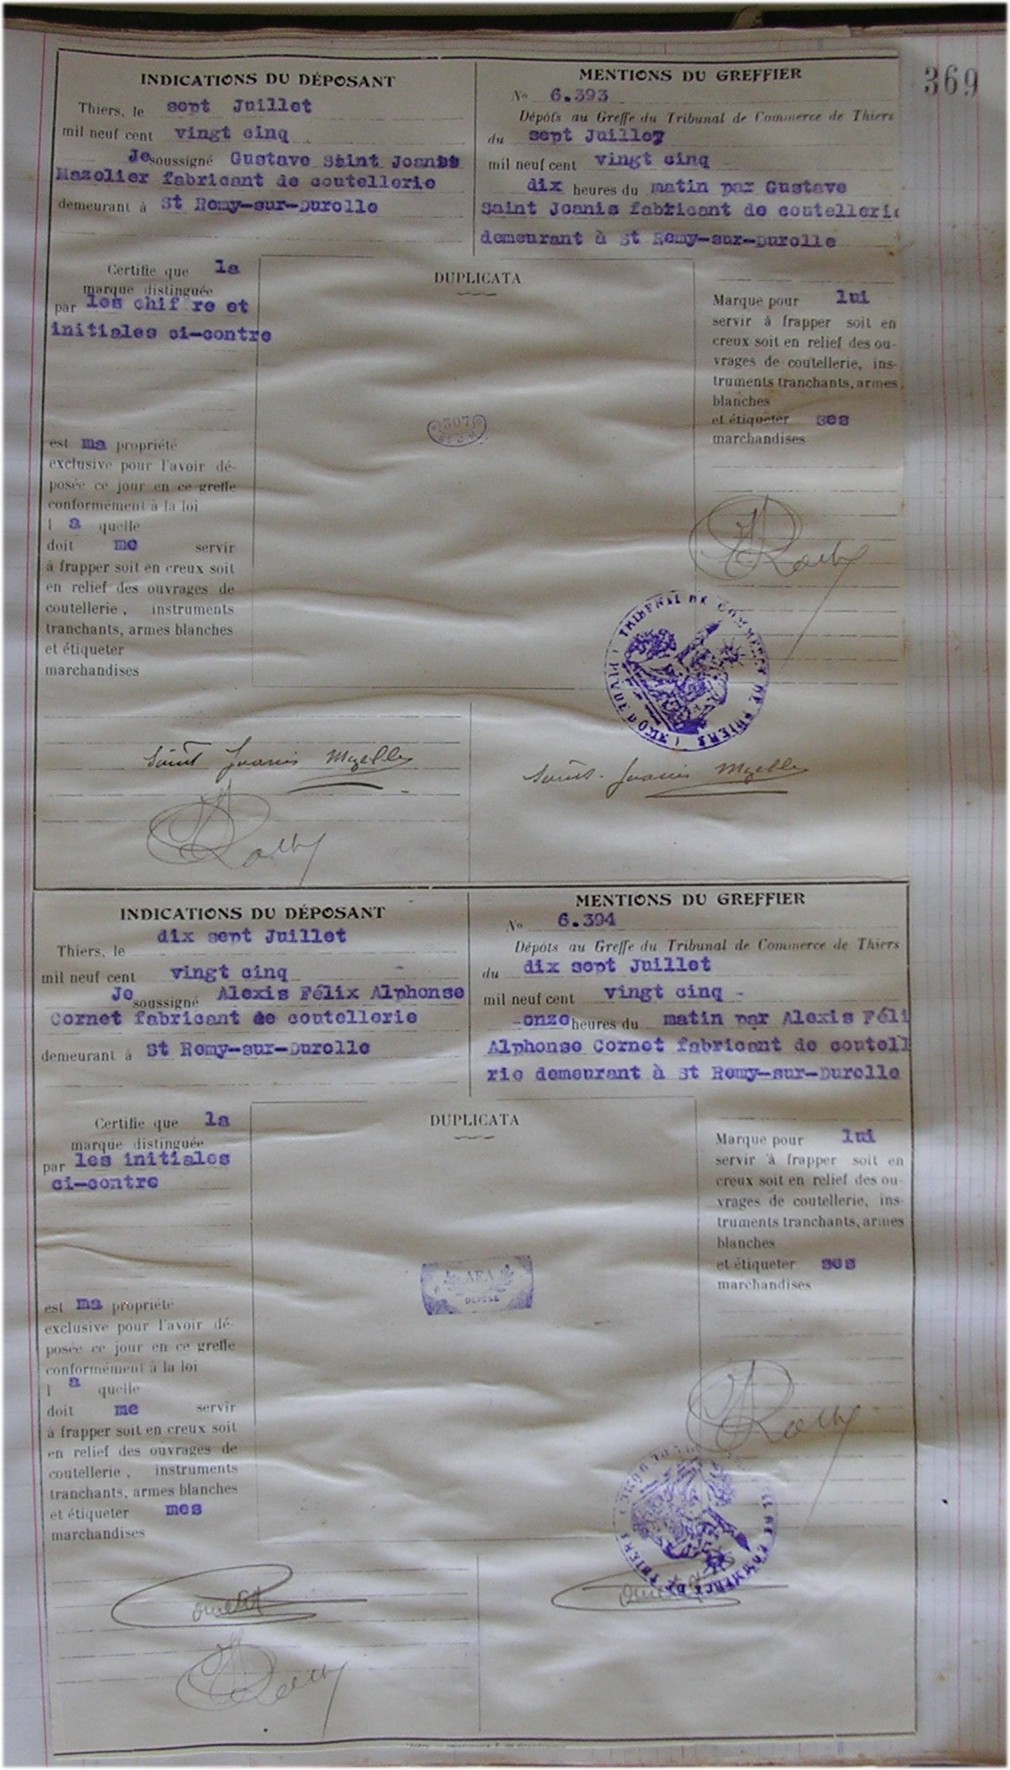 369
INDICATIONS DU DÉPOSANT
Thiers, le sept Juillet
mil neuf cent vingt cinq
Je soussigné Gustave Saint Joanis
Mazelier fabricant de coutellerie
demeurant à St Remy-sur-Durolle
MENTIONS DU GREFFIER
No 6.393
Dépôts au Greffe du Tribunal de Commerce de Thiers
du sept Juillet
mil neuf cent vingt cinq
dix heures du matin par Gustave
Saint Joanis fabricant de coutellerie
demeurant à St Remy-sur-Durolle
Certifie que la
marque distinguée
par les chif re et
initiales ci-contre
est ma propriété
exclusive pour l'avoir dé-
posée ce jour en ce greffe
conformément à la loi
l a quelle
doit me servir
à frapper soit en creux soit
en relief des ouvrages de
coutellerie, instruments
tranchants, armes blanches
et étiqueter
marchandises
DUPLICATA
307
Marque pour lui
servir à frapper soit en
creux soit en relief des ou-
vrages de coutellerie, ins-
truments tranchants, armes
blanches
et étiqueter ses
marchandises
TRIBUNAL DE COMMERCE DE THIERS (PUY DE DOME)
Saint Joanis
Saint-Joanis
INDICATIONS DU DÉPOSANT
Thiers, le dix sept Juillet
mil neuf cent vingt cinq
Je soussigné Alexis Félix Alphonse
Cornet fabricant de coutellerie
demeurant à St Remy-sur-Durolle
MENTIONS DU GREFFIER
No 6.394
Dépôts au Greffe du Tribunal de Commerce de Thiers
du dix sept Juillet
mil neuf cent vingt cinq -
-onze heures du matin par Alexis Féli
Alphonse Cornet fabricant de coutell
rie demeurant à St Remy-sur-Durolle
Certifie que la
marque distinguée
par les initiales
ci-contre
est ma propriété
exclusive pour l'avoir dé-
posée ce jour en ce greffe
conformément à la loi
l a quelle
doit me servir
à frapper soit en creux soit
en relief des ouvrages de
coutellerie, instruments
tranchants, armes blanches
et étiqueter mes
marchandises
DUPLICATA
AFA
DÉPOSÉ
Marque pour lui
servir à frapper soit en
creux soit en relief des ou-
vrages de coutellerie, ins-
truments tranchants, armes
blanches
et étiqueter ses
marchandises